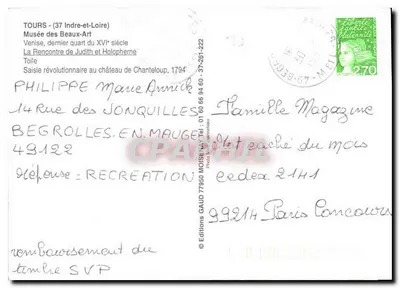 TOURS - (37 Indre-et-Loire)
Musée des Beaux-Art
Venise, dernier quart du XVIe siècle
La Rencontre de Judith et Holopherne
Toile
Saisie révolutionnaire au château de Chanteloup, 1794
PHILIPPE Marie Annick
14 Rue des JONQUILLES
BEGROLLES.EN.MAUGES
49122
Réponse = RECREATION
remboursement du
timbre SVP
© Editions GAUD 77950 MOISENAY Tél : 01 60 66 94 63 - 37-261-222
2,70
Famille Magazine
Mot caché du mois
cedex 2141
99214 Paris Concours